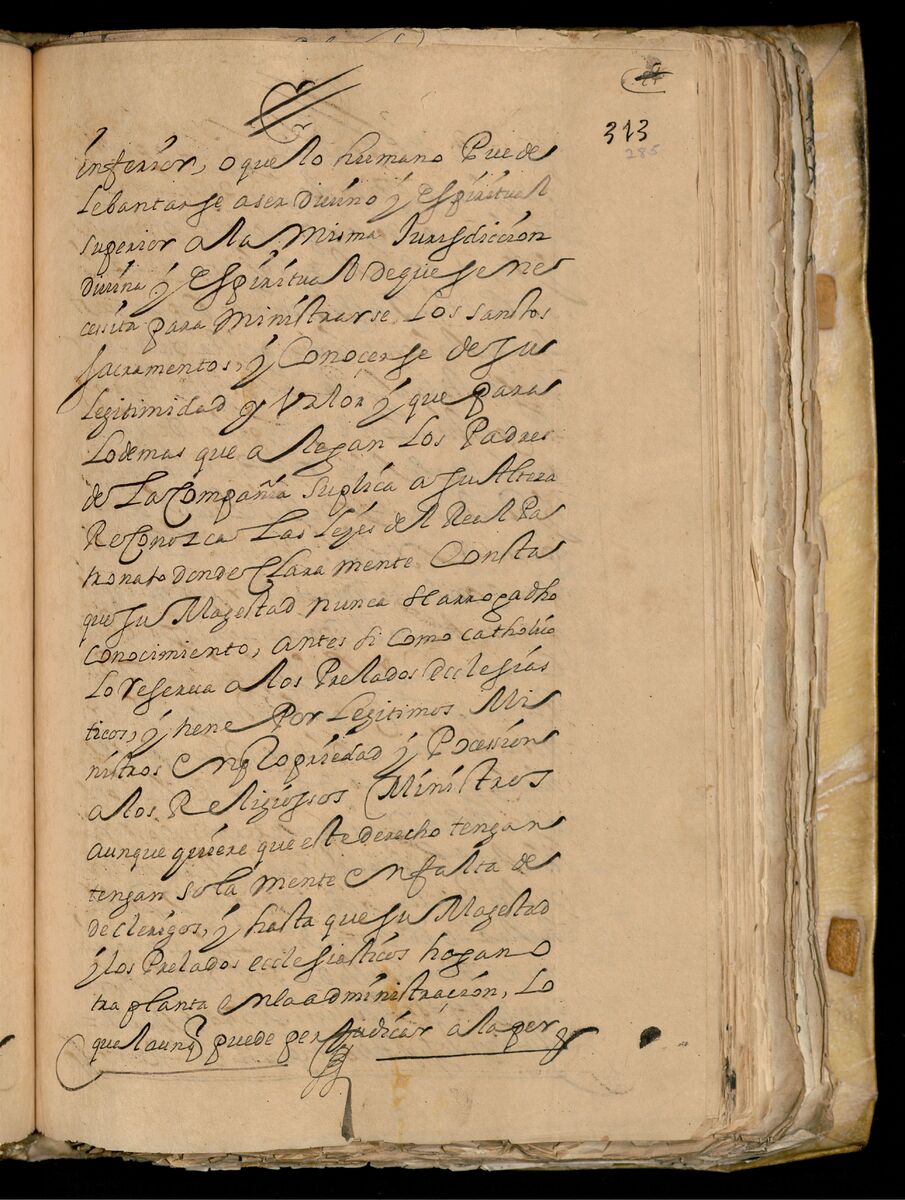 313
285
inferior, o que lo humano Puede
Lebantarse a ser Divino y Espiritual
superior a la Misma Jurisdiccion
Divina y Espiritual de que se nes
cesita para Ministrarse Los santos
sacramentos, y Conocerse de su
Legitimidad y Valor y que para
Lo demas que alegan Los Padres
de La Compañia suplica a su Alteza
Reconozca Las Leyes del Real Pa
tronato donde Clara mente Consta
que su Magestad nunca se arrogadho
conocimiento, antes si como catholico
Lo reserva a los Prelados Ecclesias
ticos, y tiene Por Legitimos Mis
nistros en Propiedad y Pocession
a los Religiossos Ministros
aunque quiere que este derecho tengan
tengan sola mente en falta de
de clerigos, y hasta que su Magestad
y los Prelados ecclesiasticos hagan o
tra planta en la administracion, Lo
que la unq puede perjudicar a la per